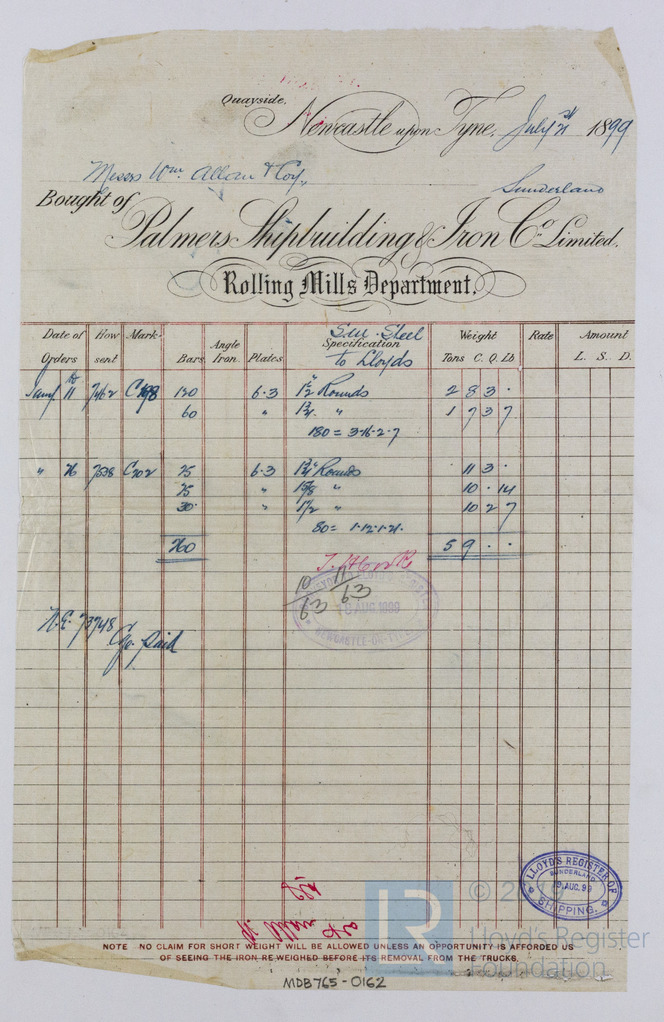 Quayside,
Newcastle upon Tyne, July 21st 1899
Messrs Wm. Allan & Coy.,
Sunderland
Bought of
Palmers Shipbuilding & Iron Co. Limited.
Rolling Mills Department.
S.M. Steel
to Lloyds
Date of Orders How sent Mark Bars Angle Iron Plates Specification Weight Tons C. Q. Lb Rate Amount L. S. D.
11 7462 C198 120 6.3 1½" Rounds 2 8 3 .
60 " 1¾ " 1 7 3 7
180 = 3-16-2-7
" 26 7538 C202 25 6.3 1¾" Rounds . 11 3 .
25 " 1⅝ " 10 . 14
30 " 1½ " 10 2 7
80 = 1-12-1-21
260 5 9 . .
10/63 11/63
AUG 1899
NEWCASTLE-ON-TYNE
N.E. 73748
Cge. Paid
LLOYD'S REGISTER OF
SUNDERLAND
AUG. 99
SHIPPING.
LR © 2019
Lloyd's Register
Foundation
NOTE NO CLAIM FOR SHORT WEIGHT WILL BE ALLOWED UNLESS AN OPPORTUNITY IS AFFORDED US
OF SEEING THE IRON RE,WEIGHED BEFORE ITS REMOVAL FROM THE TRUCKS.
MDB765-0162